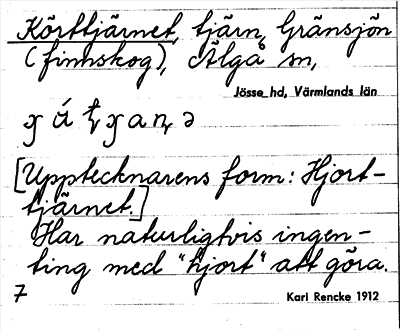 Körttjärnet, tjärn, Gränsjön
(finnskog), Älgå sn,
Jösse hd, Värmlands län
[Upptecknarens form: Hjort-
tjärnet.]
Har naturligtvis ingen-
ting med "hjort" att göra.
7
Karl Rencke 1912